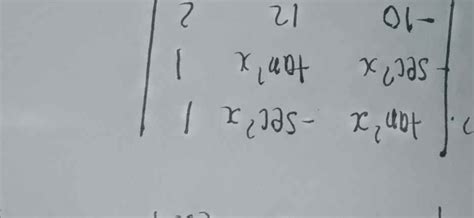 2. | tan²x -sec²x 1 |
| -sec²x tan²x 1 |
| -10 12 2 |